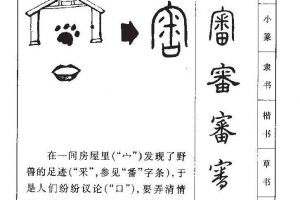 審
審
審
審
小篆
隶书
楷书
草书
在一间房屋里(“宀”)发现了野
兽的足迹(“釆”,参见“番”字条),于
是人们纷纷议论(“口”),要弄清情